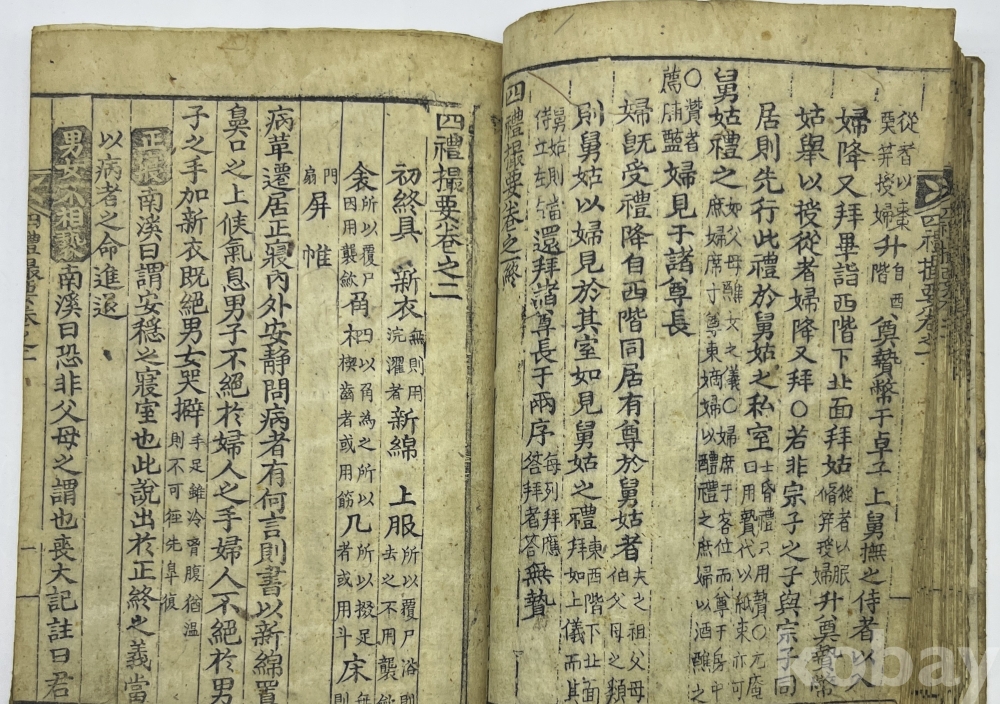 從者以棗
栗笲授婦升自西階奠贄幣于卓子上舅撫之侍者以入
婦降又拜畢詣西階下北面拜姑從者以服脩笲授婦升奠贄幣
姑舉以授從者婦降又拜○若非宗子之子與宗子同
居則先行此禮於舅姑之私室士昏禮只用贄○尤庵曰用贄代以紙束亦可
舅姑禮之如父母醮女之儀○婦席于客位而尊于房中之庶婦席寸尊東嫡婦以醴禮之庶婦以酒醮之
○贊者薦脯醢婦見于諸尊長
婦旣受禮降自西階同居有尊於舅姑者夫之祖父母伯父母之類
則舅姑以婦見於其室如見舅姑之禮拜東西階下北面拜如上儀而其
舅姑則侍立左右當還拜諸尊長于兩序每列拜應答拜者答無贄
四禮撮要卷之一終
四禮撮要卷之一
四禮撮要卷之二
初終具 新衣無則用浣濯者新綿 上服所以覆尸浴則去之不用襲斂
衾所以覆尸因用襲斂角柶四以角為之所以楔齒者或用筯几所以掇足者或用斗床無則
門扇屏 帷
病革遷居正寢內外安靜問病者有何言則書以新綿置
鼻口之上候氣息男子不絕於婦人之手婦人不絕於男
子之手加新衣既絕男女哭擗手足雖冷胷腹猶溫則不可徑先皐復
正寢南溪曰謂安穩之寢室也此說出於正終之義當
以病者之命進退
男女不相褻南溪曰恐非父母之謂也喪大記註曰君
kobay